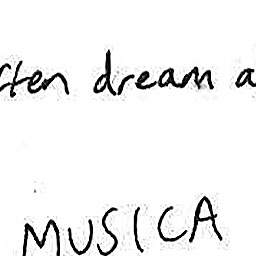 ften dream a
MUSICA